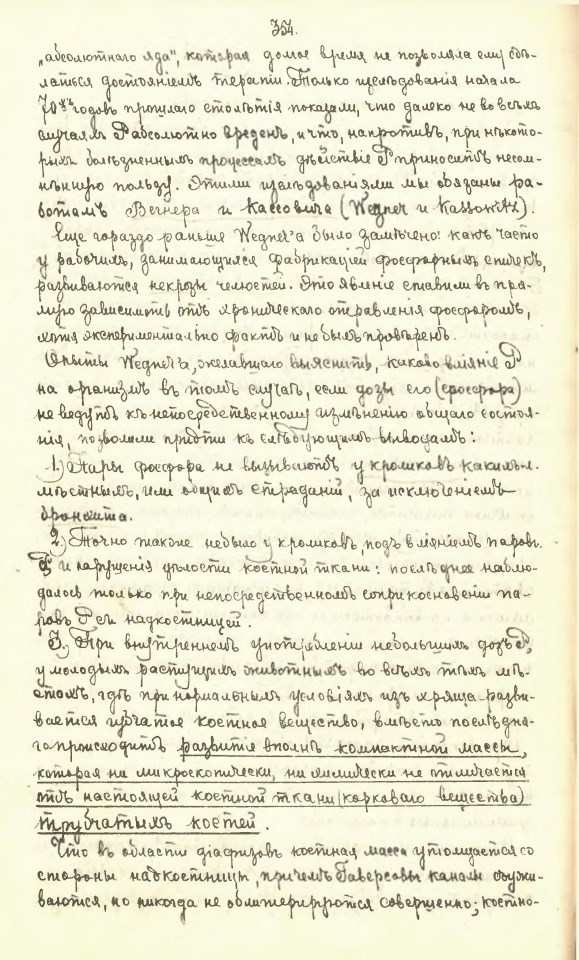 354.
„абсолютнаго яда", которая долгое время не позволяла ему сдѣ-
латься достояніемъ терапіи. Только изслѣдованія начала
70хъ годовъ прошлаго столѣтія показали, что далеко не во всѣхъ
случаяхъ P абсолютно вреденъ, и что, напротивъ, при нѣкото-
рыхъ болѣзненныхъ процессахъ дѣйствіе P приноситъ несом-
нѣнную пользу. Этими изслѣдованіями мы обязаны ра-
ботамъ Вегнера и Кассовича (Wegner и Kassowitz).
Еще гораздо раньше Wegner'а было замѣчено: какъ часто
у рабочихъ, занимающихся фабрикаціей фосфорныхъ спичекъ,
развиваются некрозы челюстей. Это явленіе ставили въ пря-
мую зависимость отъ хроническаго отравленія фосфоромъ,
хотя экспериментально фактъ и не былъ провѣренъ.
Опыты Wegner'а, желавшаго выяснить, каково вліяніе P
на организмъ въ томъ случаѣ, если дозы его (фосфора)
не ведутъ къ непосредственному измѣненію общаго состоя-
нія, позволили придти къ слѣдующимъ выводамъ:
1.) Пары фосфора не вызываютъ у кроликовъ какихъ-л.
мѣстныхъ, или общихъ страданій, за исключеніемъ
бронхита.
2.) Точно также не было у кроликовъ, подъ вліяніемъ паровъ
P, и нарушенія цѣлости костной ткани: послѣднее наблю-
далось только при непосредственномъ соприкосновеніи па-
ровъ P съ надкостницей.
3.) При внутреннемъ употребленіи небольшихъ дозъ P,
у молодыхъ растущихъ животныхъ во всѣхъ тѣхъ мѣ-
стахъ, гдѣ при нормальныхъ условіяхъ изъ хряща разви-
вается губчатое костное вещество, вмѣсто послѣдня-
го происходитъ развитіе вполнѣ компактной массы,
которая ни микроскопически, ни химически не отличается
отъ настоящей костной ткани (корковаго вещества)
трубчатыхъ костей.
Что въ области діафизовъ костная масса утолщается со
стороны надкостницы, причемъ Гаверсовы каналы съужи-
ваются, но никогда не облитерируются совершенно; костно-